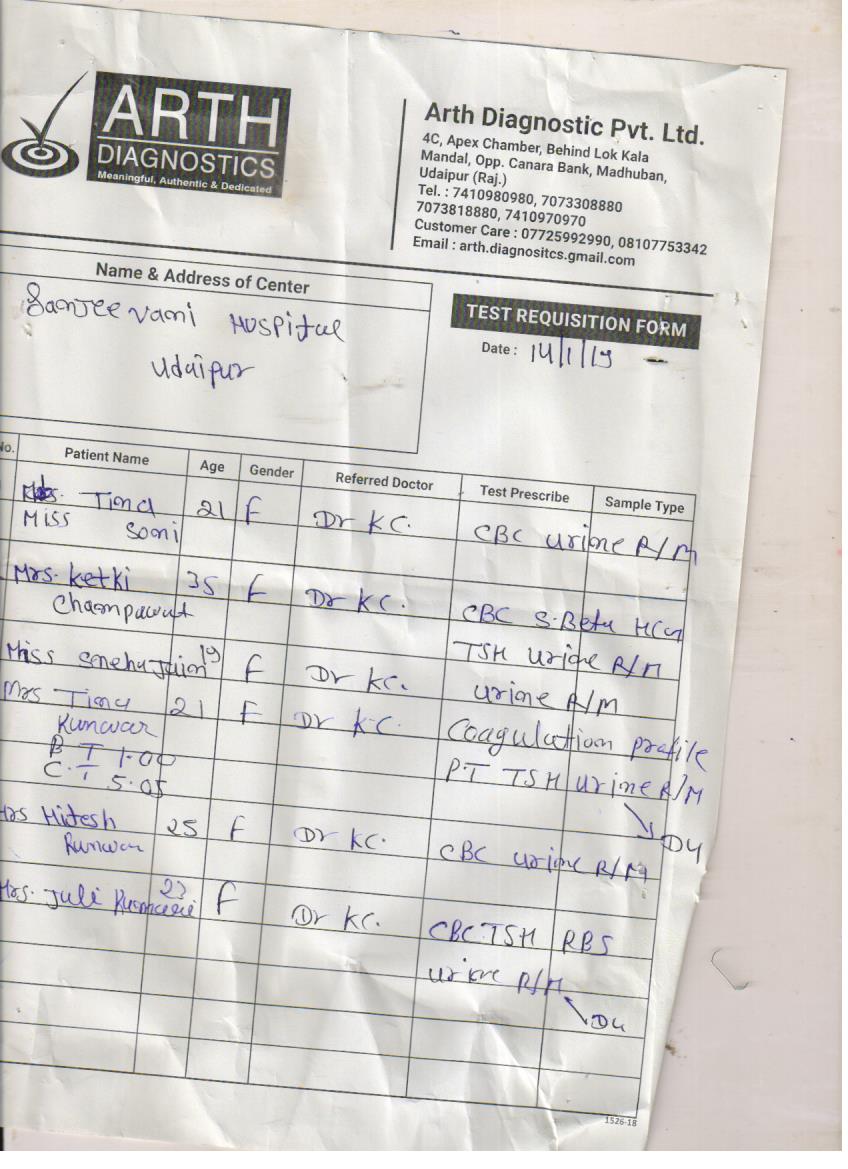 ARTH
DIAGNOSTICS
Meaningful, Authentic & Dedicated
Arth Diagnostic Pvt. Ltd.
4C, Apex Chamber, Behind Lok Kala
Mandal, Opp. Canara Bank, Madhuban,
Udaipur (Raj.)
Tel. : 7410980980, 7073308880
7073818880, 7410970970
Customer Care : 07725992990, 08107753342
Email : arth.diagnositcs.gmail.com
Name & Address of Center
Sanjeevani Hospital
Udaipur
TEST REQUISITION FORM
Date : 14/1/19
No. Patient Name Age Gender Referred Doctor Test Prescribe Sample Type
Tina 21 F Dr KC. CBC urine R/M
Miss Soni
Mrs. Ketki 35 F Dr KC. CBC S.Beta HCG
Champawat TSH Urine R/M
Miss Sneha Jain 19 F Dr KC. urine R/M
Mrs Tina 21 F Dr K.C. Coagulation profile
Kunwar PT TSH urine R/M
B T 1.00
C.T 5.05
Mrs Hitesh 25 F Dr KC. CBC urine R/M
Kunwar
Mrs. Juli 23 F Dr KC. CBC TSH RBS
urine R/M
1526-18